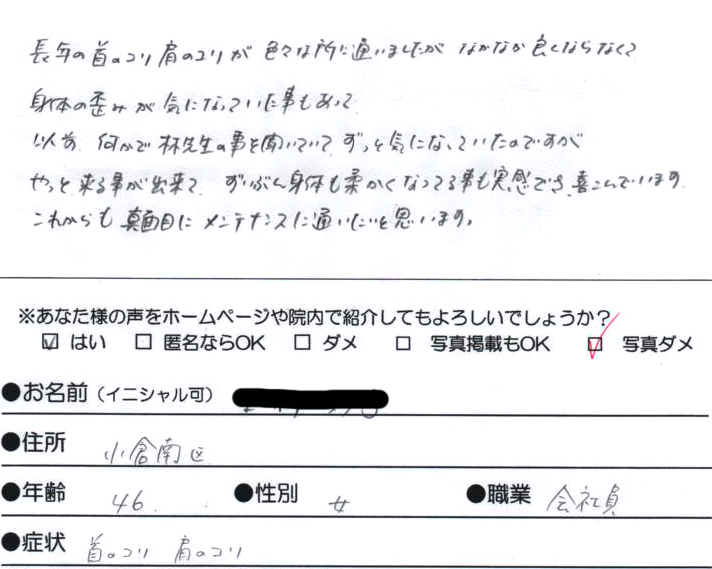 長年の首のコリ肩のコリが色々な所に通いましたがなかなか良くならなくて
身体の歪みが気になっていた事もあって
以前何かで林先生の事を聞いていてずっと気になっていたのですが
やっと来る事が出来て ずいぶん身体も柔かくなってる事も実感でき、喜こんでいます。
これからも真面目にメンテナンスに通いたいと思います。
※あなた様の声をホームページや院内で紹介してもよろしいでしょうか？
☑ はい □ 匿名ならOK □ ダメ □ 写真掲載もOK ☑ 写真ダメ
●お名前（イニシャル可）
●住所 小倉南区
●年齢 46 ●性別 女 ●職業 会社員
●症状 首のコリ 肩のコリ